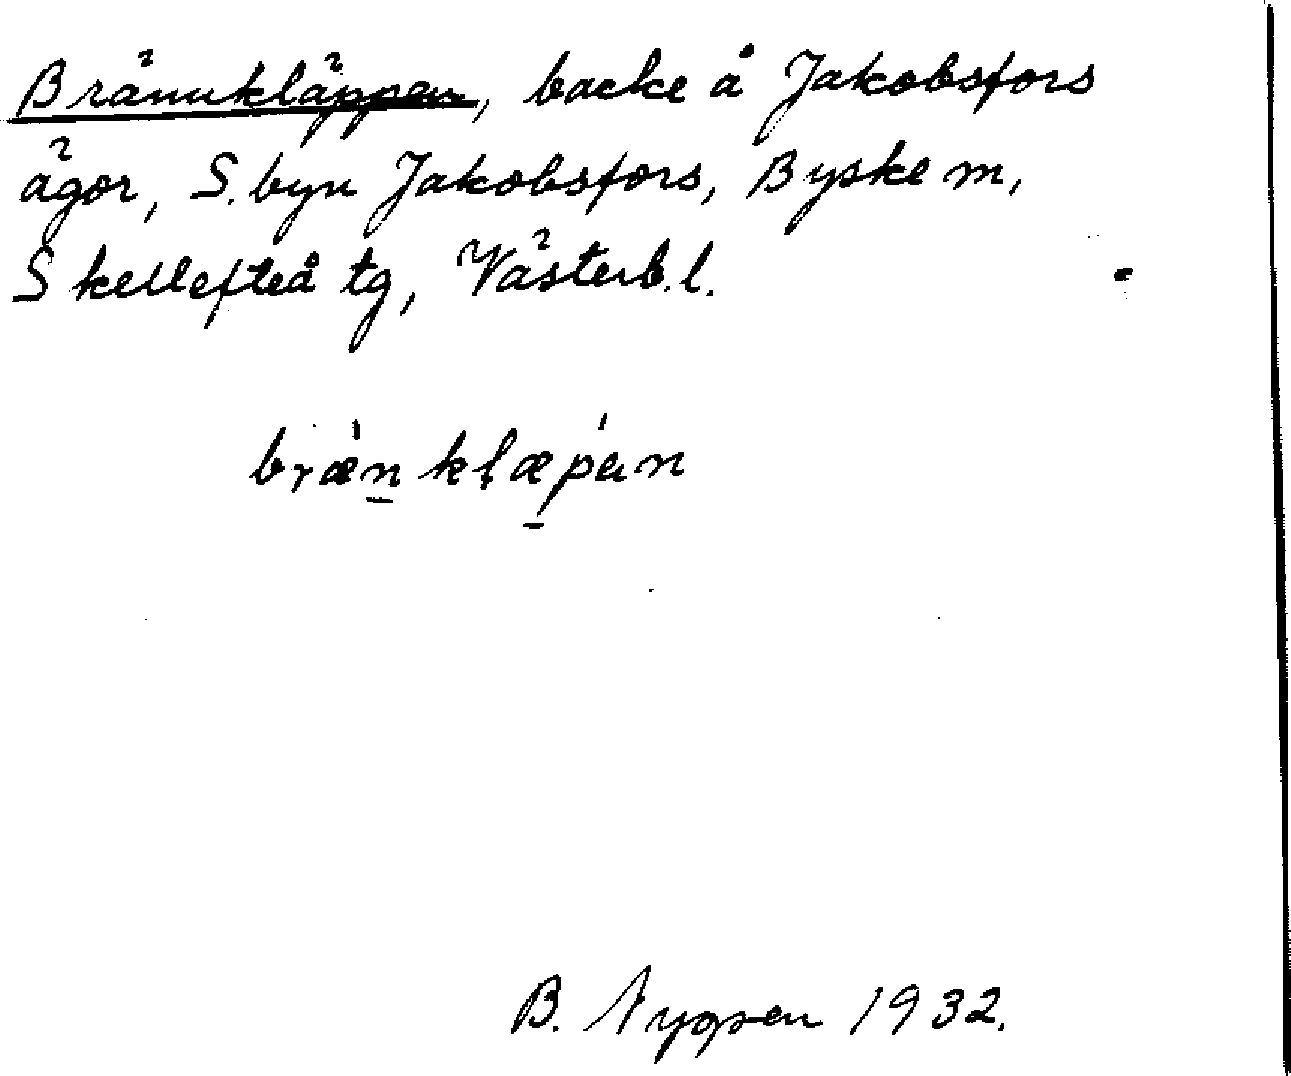 Brännkläppen, backe å Jakobsfors
ägor, S. byn Jakobsfors, Byske sn,
Skellefteå tg, Västerb. l.
bræ̀n̠klæ̠pán
B. 1932.